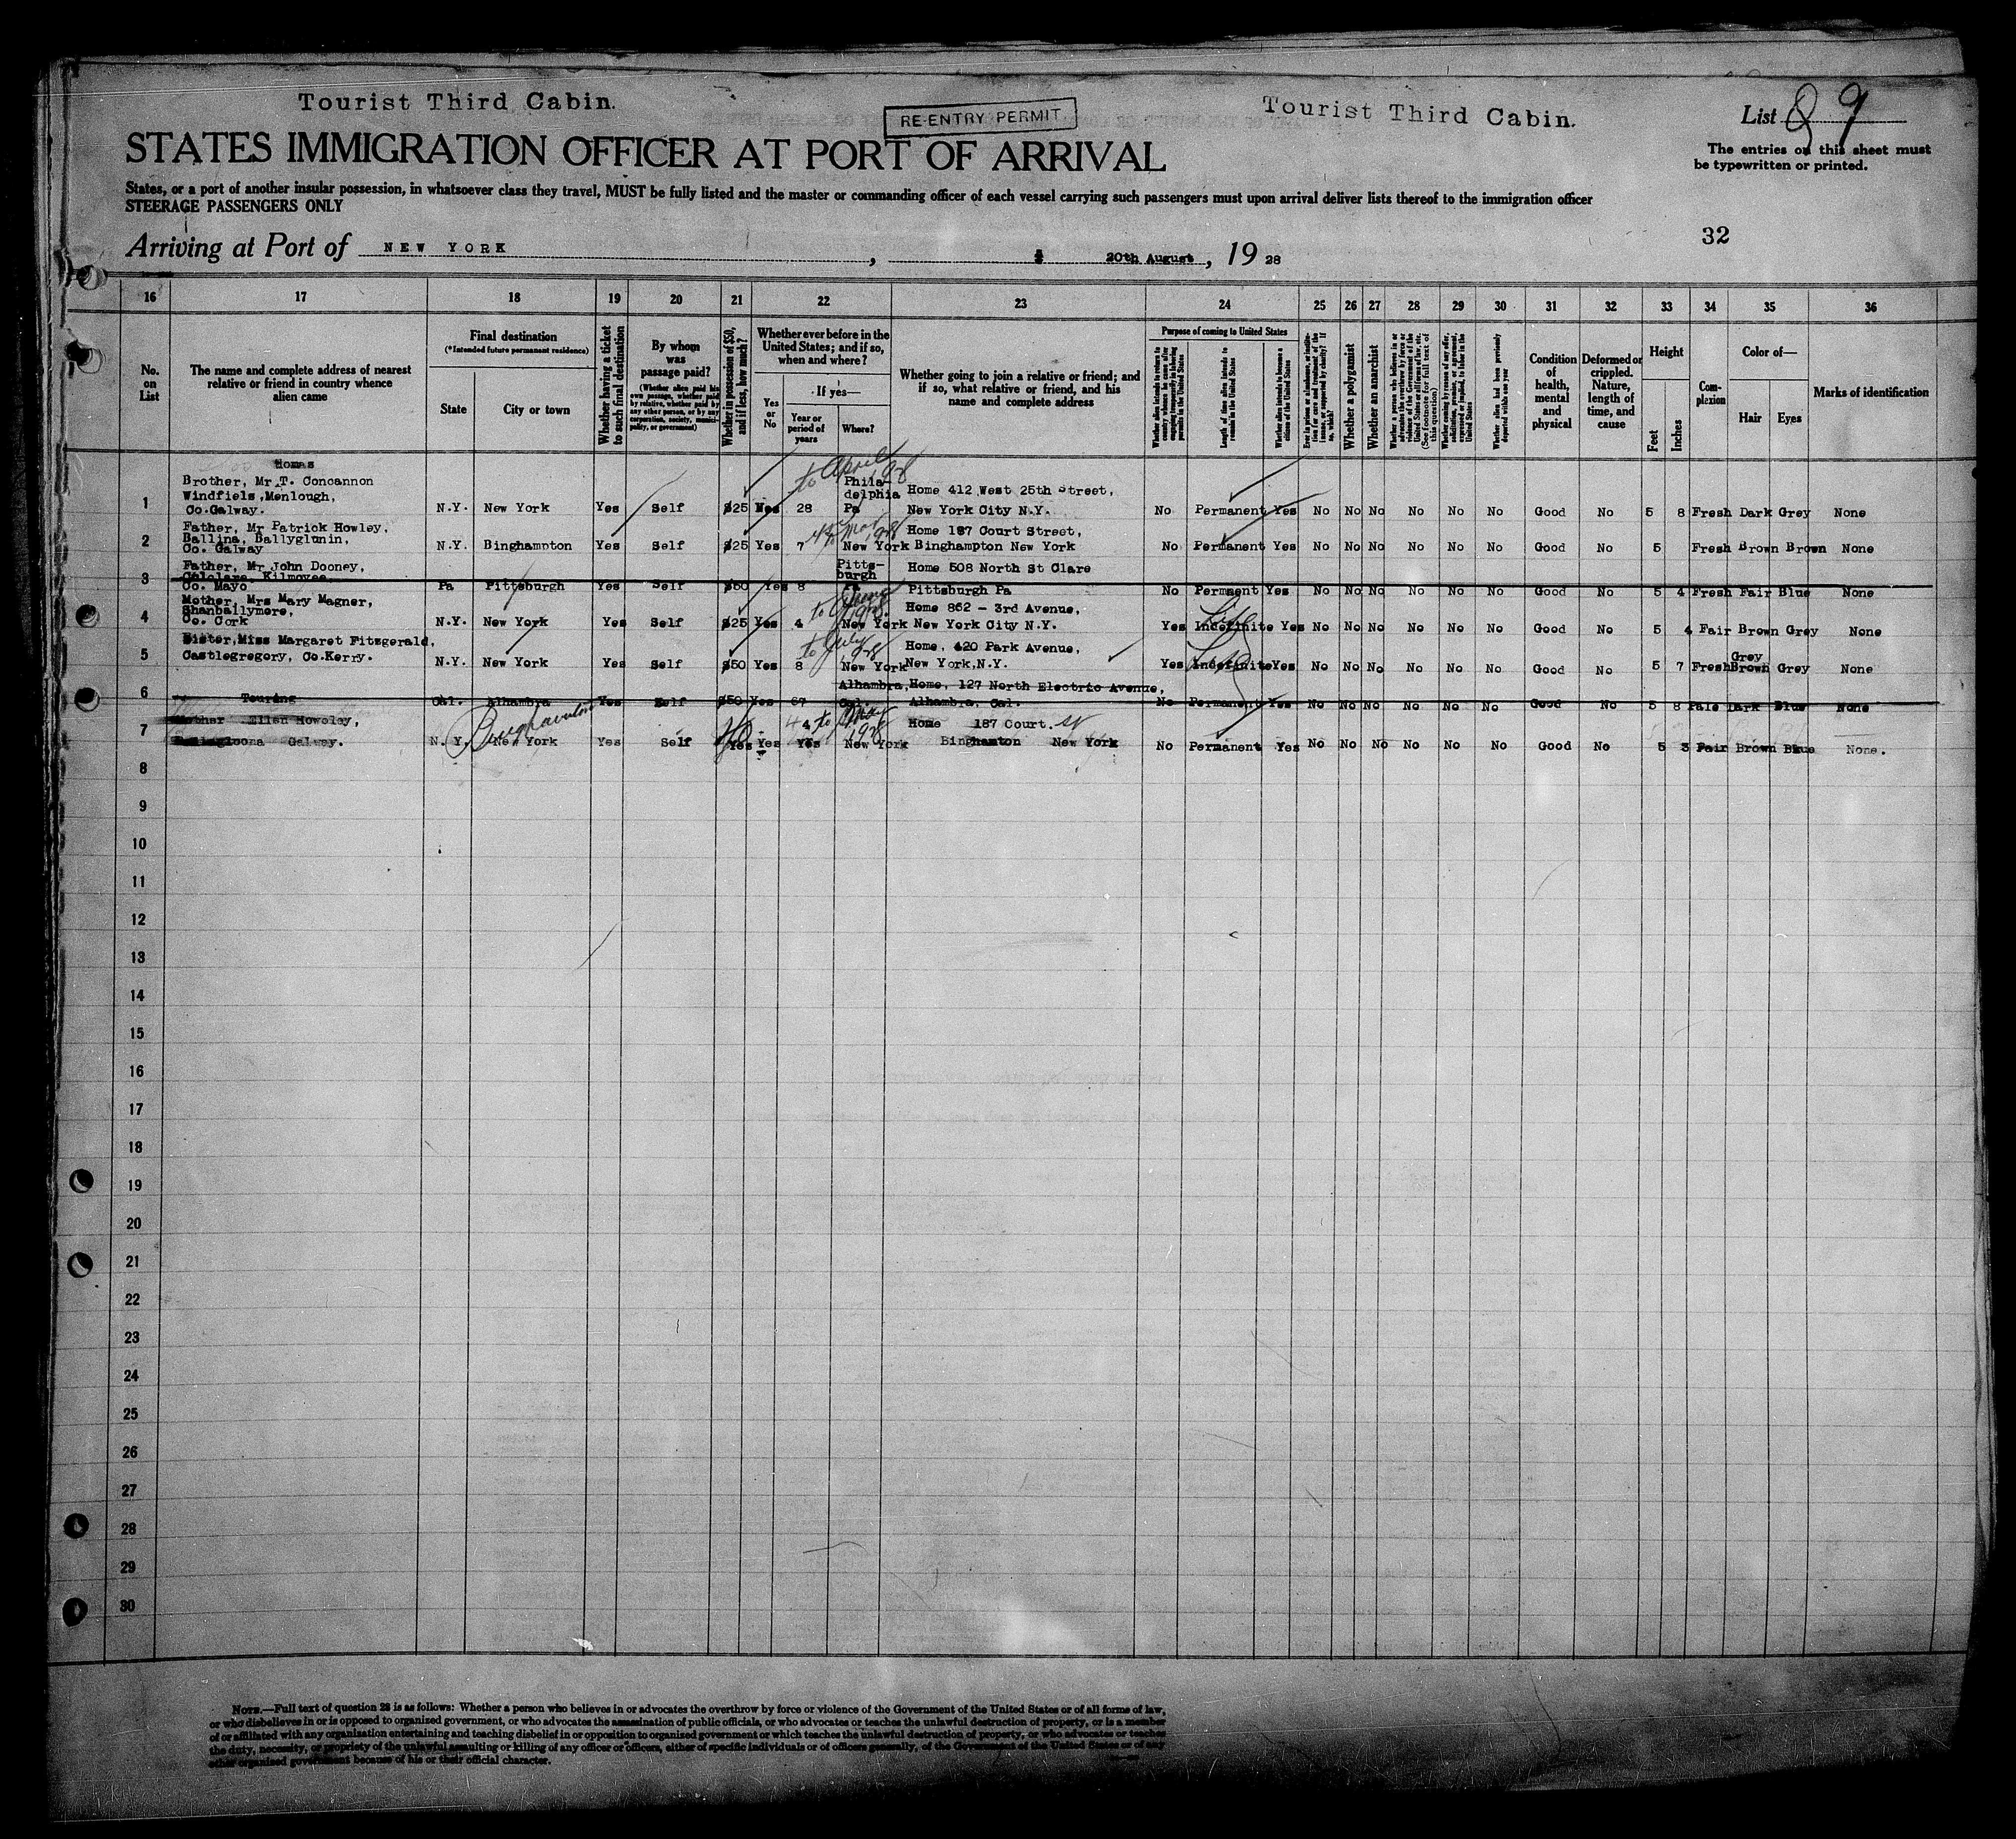 Tourist Third Cabin.
RE-ENTRY PERMIT
Tourist Third Cabin.
List 89
STATES IMMIGRATION OFFICER AT PORT OF ARRIVAL
The entries on this sheet must
be typewritten or printed.
States, or a port of another insular possession, in whatsoever class they travel, MUST be fully listed and the master or commanding officer of each vessel carrying such passengers must upon arrival deliver lists thereof to the immigration officer
STEERAGE PASSENGERS ONLY
32
Arriving at Port of NEW YORK , 20th August , 19 28
16 17 18 19 20 21 22 23 24 25 26 27 28 29 30 31 32 33 34 35 36
No.
on
List
The name and complete address of nearest
relative or friend in country whence
alien came
Final destination
(*Intended future permanent residence)
State
City or town
Whether having a ticket
to such final destination
By whom
was
passage paid?
(Whether alien paid his
own passage, whether paid
by relative, whether paid by
any other person, or by any
corporation, society, munici-
pality, or government)
Whether in possession of $50,
and if less, how much?
Whether ever before in the
United States; and if so,
when and where?
Yes
or
No
If yes—
Year or
period of
years
Where?
Whether going to join a relative or friend; and
if so, what relative or friend, and his
name and complete address
Purpose of coming to United States
Length of time alien intends to
remain in the United States
Whether alien intends to become a
citizen of the United States
Whether a polygamist
Whether an anarchist
(See footnote for full text of
this question)
Whether alien had been previously
deported within one year
Condition
of
health,
mental
and
physical
Deformed or
crippled.
Nature,
length of
time, and
cause
Height
Feet
Inches
Com-
plexion
Color of—
Hair
Eyes
Marks of identification
Homas
Brother, Mr T. Concannon
Windfiels, Menlough,
Co.Galway.
1 N.Y. New York Yes Self $25 Yes 28
to April 1928
Phila-
delphia
Pa
Home 412 West 25th Street,
New York City N.Y.
No Permanent Yes No No No No No No Good No 5 8 Fresh Dark Grey None
Father, Mr Patrick Howley,
Ballina, Ballyglunin,
Co. Galway
2 N.Y. Binghampton Yes Self $25 Yes 7
New York
Home 187 Court Street,
Binghampton New York
No Permanent Yes No No No No No No Good No 5 Fresh Brown Brown None
Father, Mr John Dooney,
Kilmovee
Co. Mayo
3 Pa Pittsburgh Yes Self $50 Yes 8
Pitts-
burgh
Home 508 North St Clare
Pittsburgh Pa
No Permanent Yes No No No No No No Good No 5 4 Fresh Fair Blue None
Mother, Mrs Mary Magner,
Shanballymore,
Co. Cork
4 N.Y. New York Yes Self $25 Yes 4
to June 1928
New York
Home 862 - 3rd Avenue,
New York City N.Y.
Yes Indefinite Yes No No No No No No Good No 5 4 Fair Brown Grey None
Life
Sister,Miss Margaret Fitzgerald,
Castlegregory, Co.Kerry.
5 N.Y. New York Yes Self $50 Yes 8
to July 1928
New York
Home, 420 Park Avenue,
New York,N.Y.
Yes Indefinite Yes No No No No No No Good No 5 7 Fresh Brown Grey None
Grey
6 Touring Cal. Alhambra Yes Self $50 Yes 67
Alhambra,
Cal.
Home, 127 North Electric Avenue,
Alhambra, Cal.
No Permanent Yes No No No No No No Good No 5 8 Pale Dark Blue None
Mother Ellen Howoley,
Galway.
7 N.Y. New York Yes Self Yes Yes Yes
1928
New York
Home 187 Court. St
Binghamton New York
No Permanent Yes No No No No No No Good No 5 3 Fair Brown Blue None.
8
9
10
11
12
13
14
15
16
17
18
19
20
21
22
23
24
25
26
27
28
29
30
NOTE.—Full text of question 28 is as follows: Whether a person who believes in or advocates the overthrow by force or violence of the Government of the United States or of all forms of law,
or who disbelieves in or is opposed to organized government, or who advocates the assassination of public officials, or who advocates or teaches the unlawful destruction of property, or is a member
of or affiliated with any organization entertaining and teaching disbelief in or opposition to organized government or which teaches the unlawful destruction of property, or who advocates or teaches
the duty, necessity, or propriety of the unlawful assaulting or killing of any officer or officers, either of specific individuals or of officers generally, of the Government of the United States or of any
other organized government because of his or their official character.